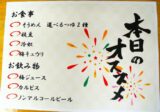 本日のオススメ
お食事
そうめん 選べるつゆ2種
枝豆
冷奴
梅キュウリ
お飲み物
梅ジュース
カルピス
ノンアルコールビール